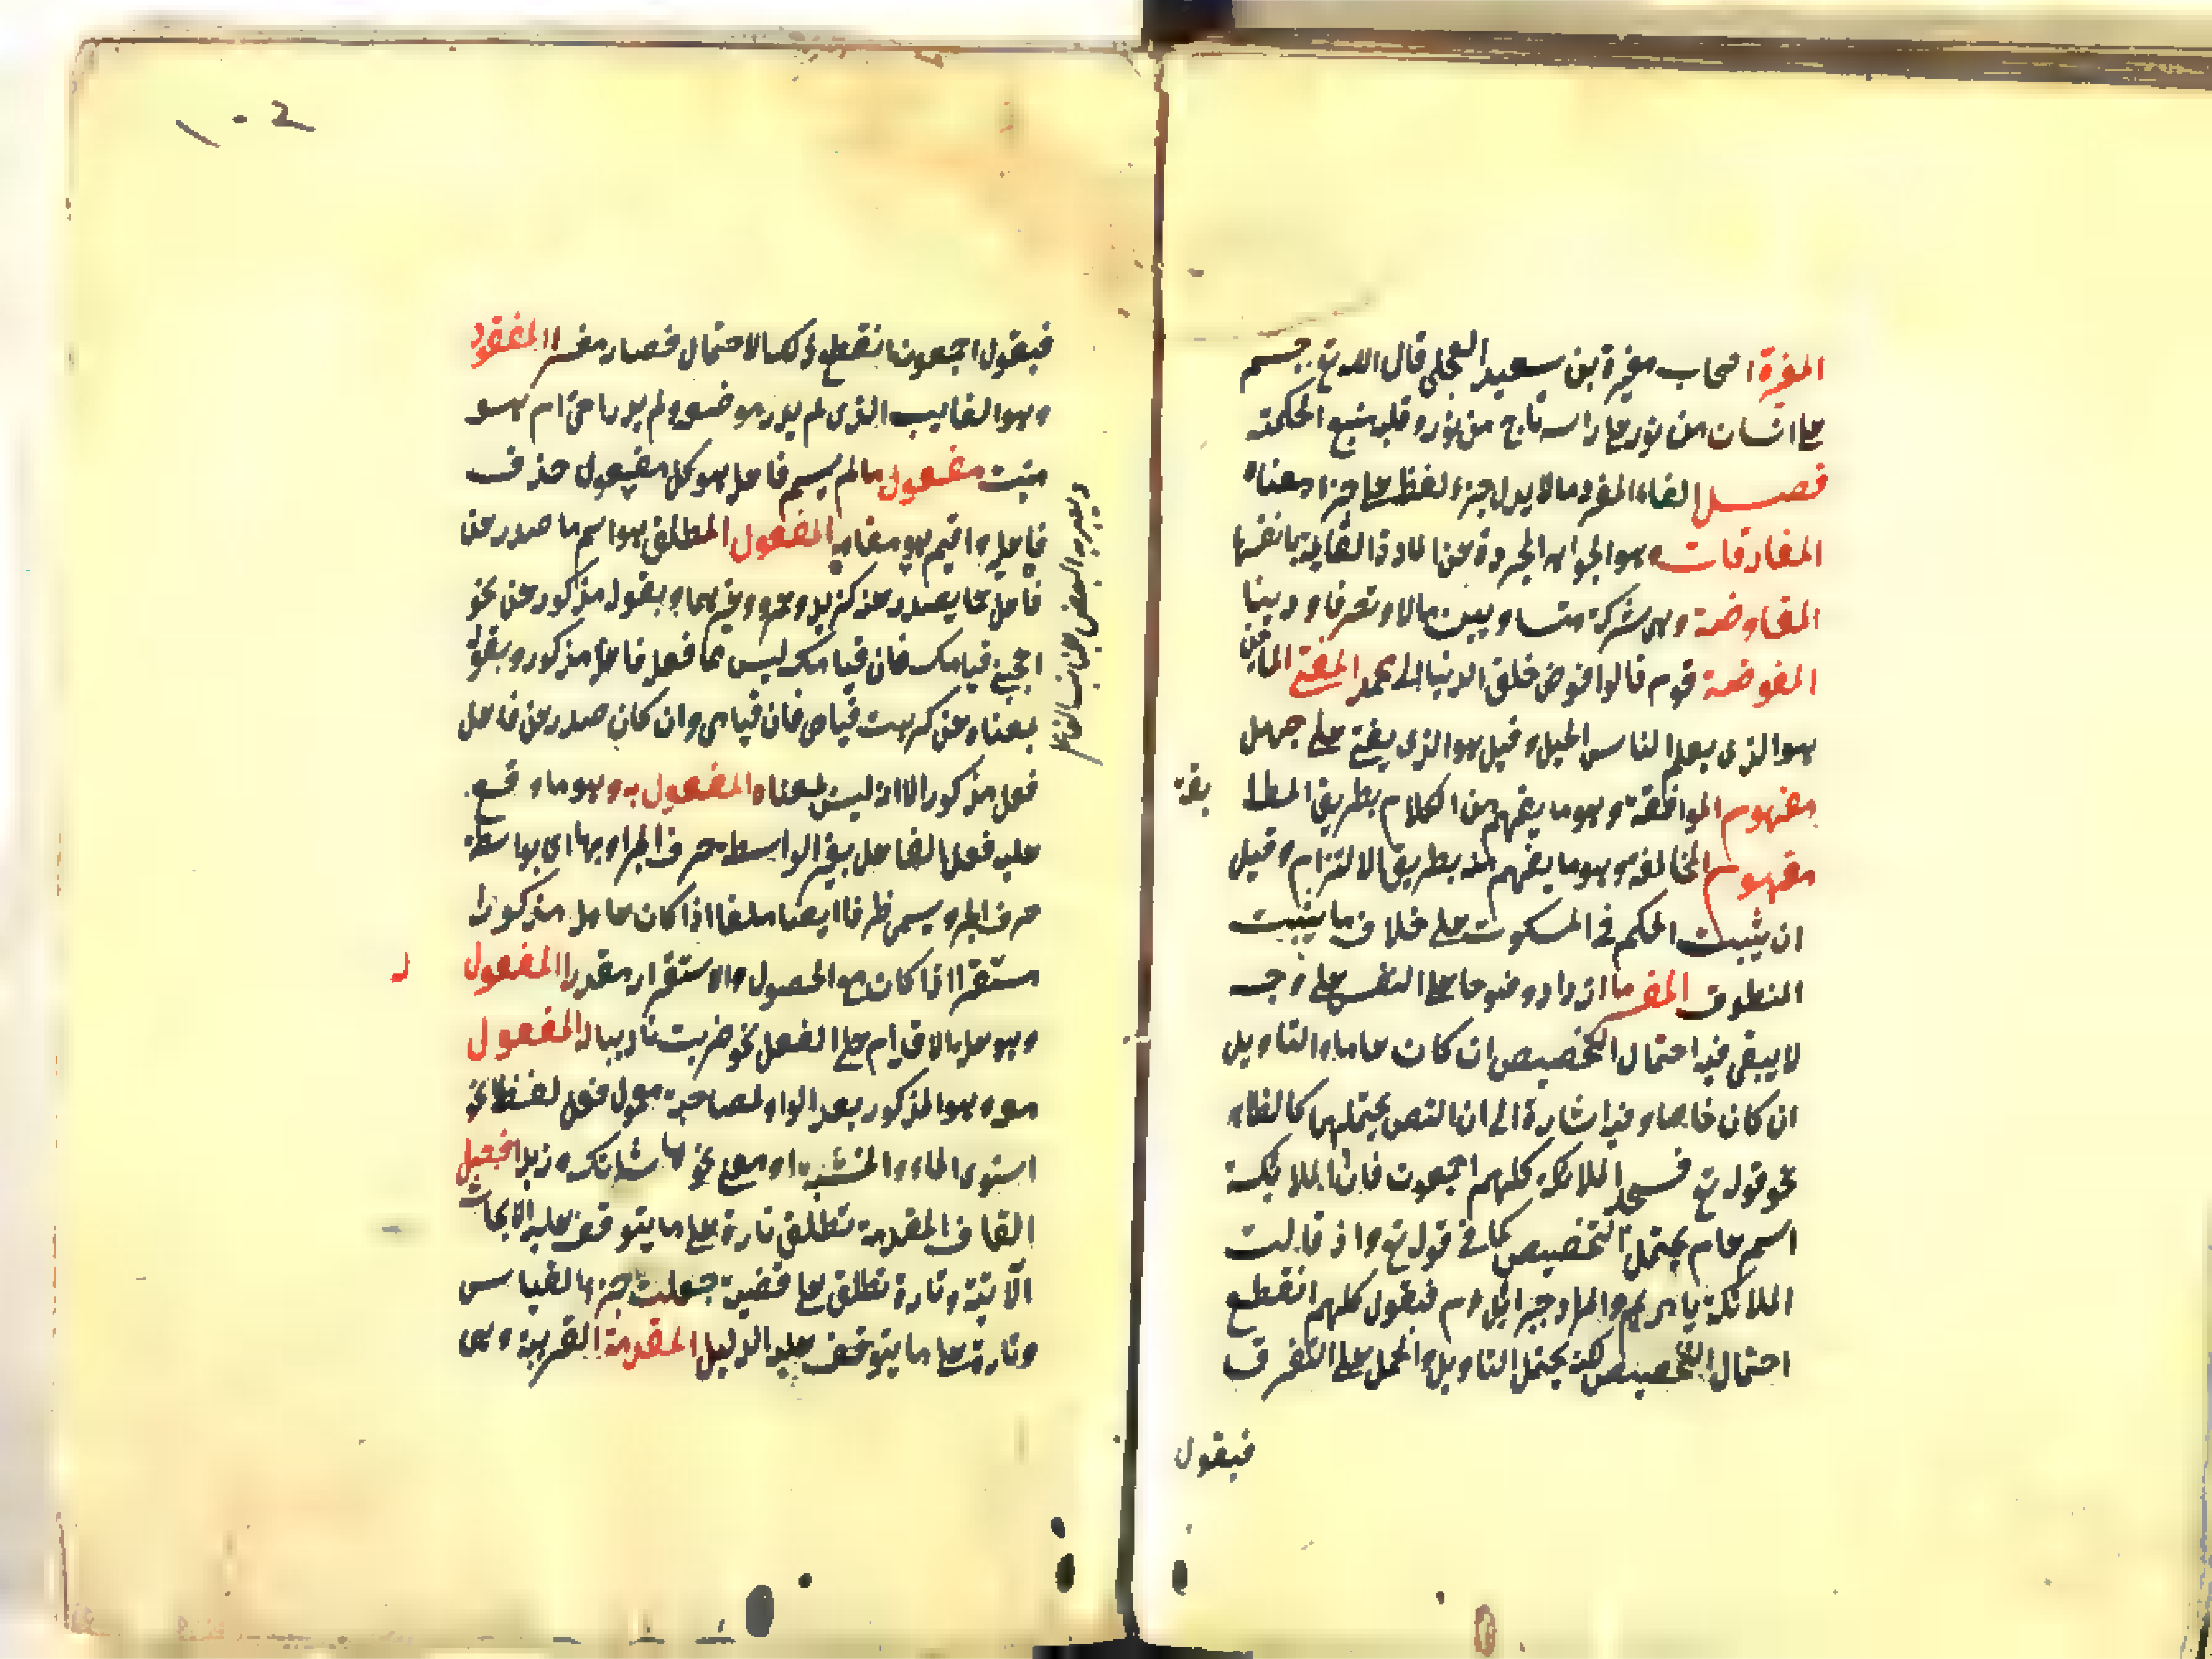 المغيرة اصحاب مغيرة بن سعيد العجلي قال الله تع جسم
على انسان من نور على راسه تاج من نور وقلبه منبع الحكمة
فصل الفاء المفرد ما لا يدل جزء لفظه على جزء معناه
المفارقات هو الجواهر المجردة عن المادة القايمة بانفسها
المفاوضة وهى شركة متساويين مالا وتصرفا ودينا
المفوضة قوم قالوا فوض خلق الدنيا الى محمد المفتى الماجن
هو الذى يعلم الناس الحيل وقيل هو الذى يفتى على جهل
مفهوم الموافقة وهو ما يفهم من الكلام بطريق المطا
بقة
مفهوم المخالفة وهو ما يفهم منه بطريق الالتزام وقيل
ان يثبت الحكم فى المسكوت على خلاف ما يثبت
المنطوق المفسر ما ازداد وضوحا على النص على وجه
لا يبقى فيه احتمال التخصيص ان كان عاما والتاويل
ان كان خاصا وفيه اشارة الى ان النص يحتملهما كالظاهر
نحو قوله تع فسجد الملائكة كلهم اجمعون فان الملائكة
اسم عام يحتمل التخصيص كما فى قوله تع واذ قالت
الملائكة يا مريم والمراد جبرائيل عم فبقوله كلهم انقطع
احتمال التخصيص لكنه يحتمل التاويل والحمل على التفرق
فبقول
١٠٢
فبقوله اجمعون انقطع ذلك الاحتمال فصار مفسرا المفقود
وهو الغايب الذى لم يدر موضعه ولم يدر احى ام هو
ميت مفعول ما لم يسم فاعله هو كل مفعول حذف
فاعله واقيم هو مقامه المفعول المطلق هو اسم ما صدر عن
فاعل عما يصدر عنه كزيد وعمرو وغيرهما وبقوله مذكور عن نحو
اعجبنى قيامك فان قيامك ليس مما فعله فاعل مذكور وبقوله
بمعناه عن كرهت قيامى فان قيامى وان كان صدر عن فاعل
فعل مذكور الا انه ليس بمعناه المفعول به وهو ما وقع
عليه فعل الفاعل بغير الواسطة حرف الجر او بها اى بواسطة
حرف الجر ويسمى ظرفا ايضا ملغا اذا كان عامله مذكورا
مستقرا اذا كان مع الحصول والاستقرار مقدرا المفعول
له
وهو علة الاقدام على الفعل نحو ضربت تاديبا له المفعول
معه وهو المذكور بعد الواو لمصاحبة معمول فعل لفظا نحو
استوى الماء والخشبة او معنى نحو ما شانك وزيدا فصل
القاف المقدمة تطلق تارة على ما يتوقف عليه الابحاث
الآتية وتارة تطلق على قضية جعلت جزء القياس
وتارة على ما يتوقف عليه الدليل المقدمة القريبة وهى